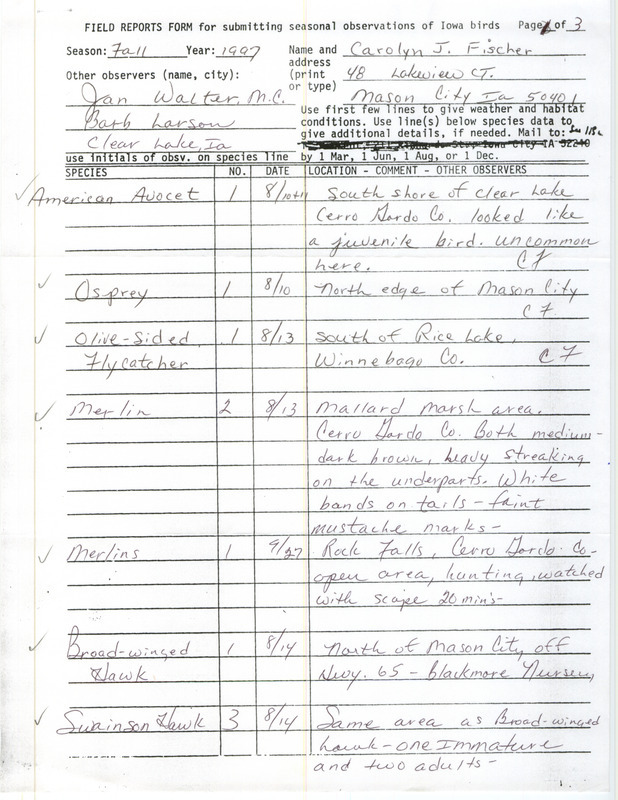 FIELD REPORTS FORM for submitting seasonal observations of Iowa birds Page 1 of 3
Season: Fall Year: 1997 Name and Carolyn J. Fischer
address
Other observers (name, city): (print 48 Lakeview CT.
or type)
Jan Walter, M.C. Mason City Ia 50401
Barb Larson
Clear Lake, Ia
Use first few lines to give weather and habitat
conditions. Use line(s) below species data to
give additional details, if needed. Mail to:
Iowa City IA 52240
use initials of obsv. on species line by 1 Mar, 1 Jun, 1 Aug, or 1 Dec.
SPECIES NO. DATE LOCATION - COMMENT - OTHER OBSERVERS
American Avocet 1 8/10+11 South shore of Clear Lake
Cerro Gordo Co. looked like
a juvenile bird. uncommon
here. CF
Osprey 1 8/10 North edge of Mason City
CF
Olive-Sided 1 8/13 South of Rice Lake,
Flycatcher Winnebago Co. CF
Merlin 2 8/13 Mallard Marsh area.
Cerro Gordo Co. Both medium-
dark brown, heavy streaking
on the underparts. White
bands on tails - faint
mustache marks -
Merlins 1 9/27 Rock Falls, Cerro Gordo Co-
open area, hunting, watched
with scope 20 min's-
Broad-winged 1 8/14 North of Mason City, off
Hawk Hwy. 65 - Blackmore Nursery
Swainson Hawk 3 8/14 Same area as Broad-winged
hawk - one Immature
and two adults -